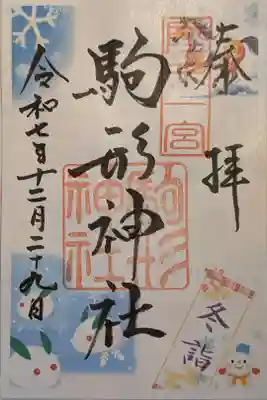 奉拝
一宮
駒形神社
駒形神社
令和七年十二月二十九日
冬詣